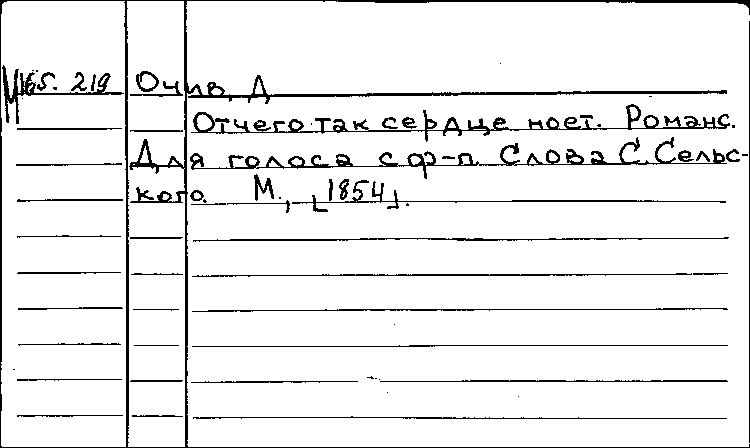 М165. 219 Очив, Д
Отчего так сердце ноет. Романс.
Для голоса с ф-п. Слова С. Сельс-
кого. М., [1854].